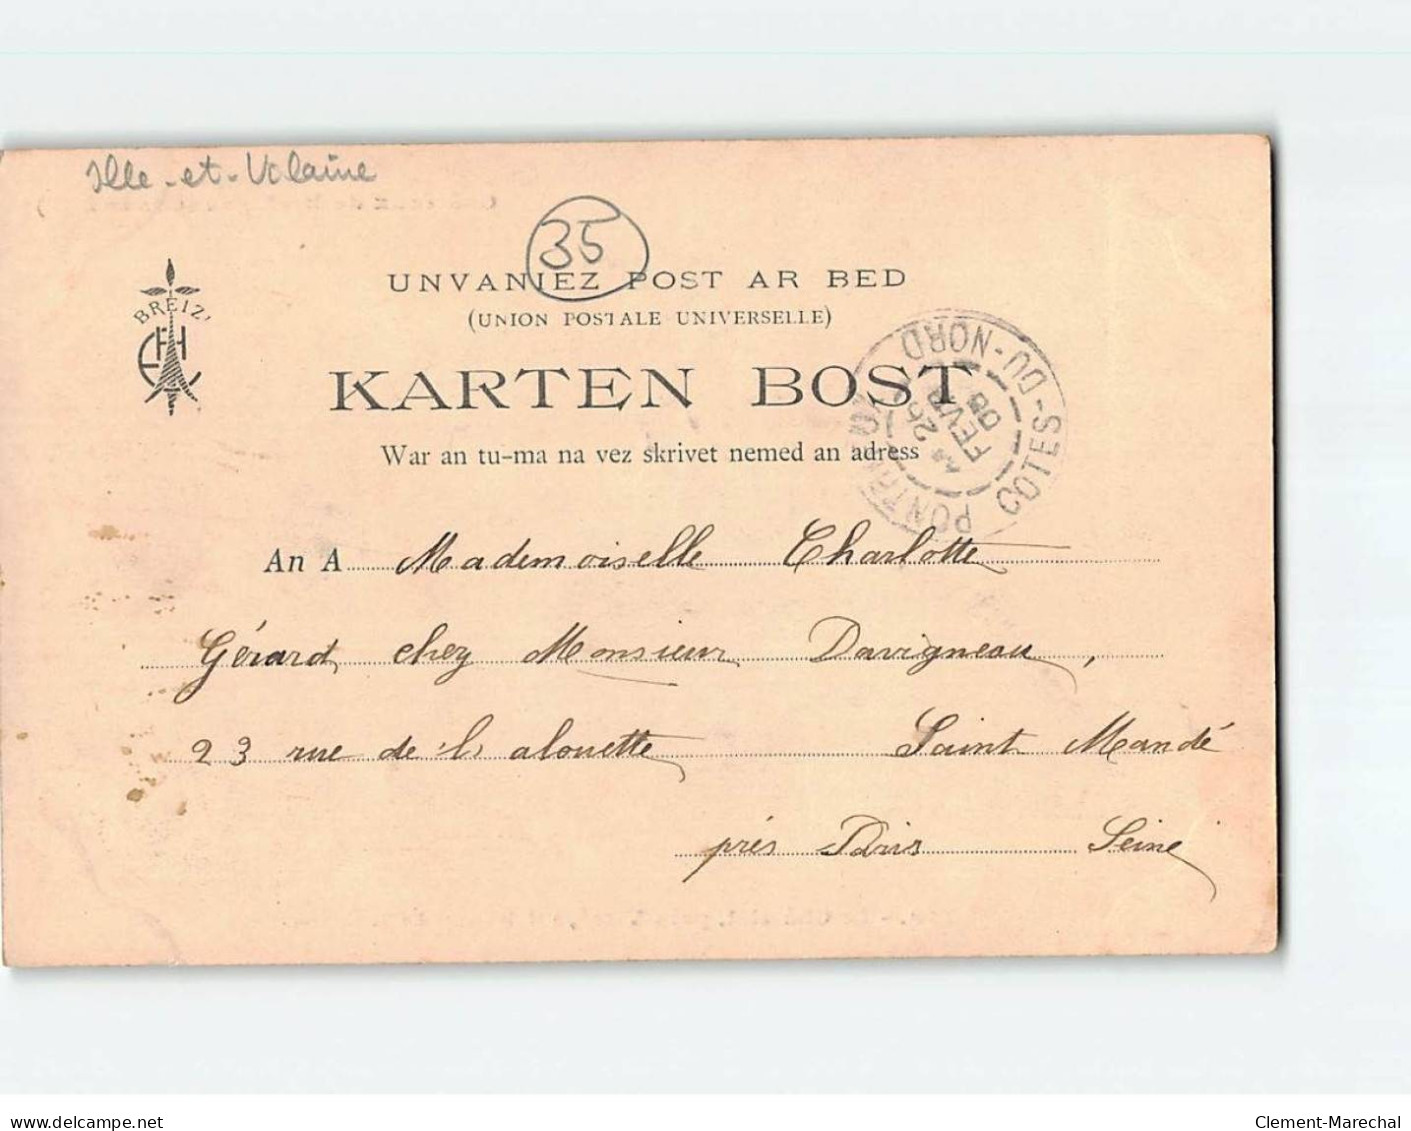 Ille-et-Vilaine
35
BREIZ
UNVANIEZ POST AR BED
(UNION POSTALE UNIVERSELLE)
KARTEN BOST
War an tu-ma na vez skrivet nemed an adress
COTES-DU-NORD
FEVR
An A Mademoiselle Charlotte
Gérard chez Monsieur Davigneau,
23 rue de l'alouette Saint Mandé
près Paris Seine
www.delcampe.net
Clement-Marechal